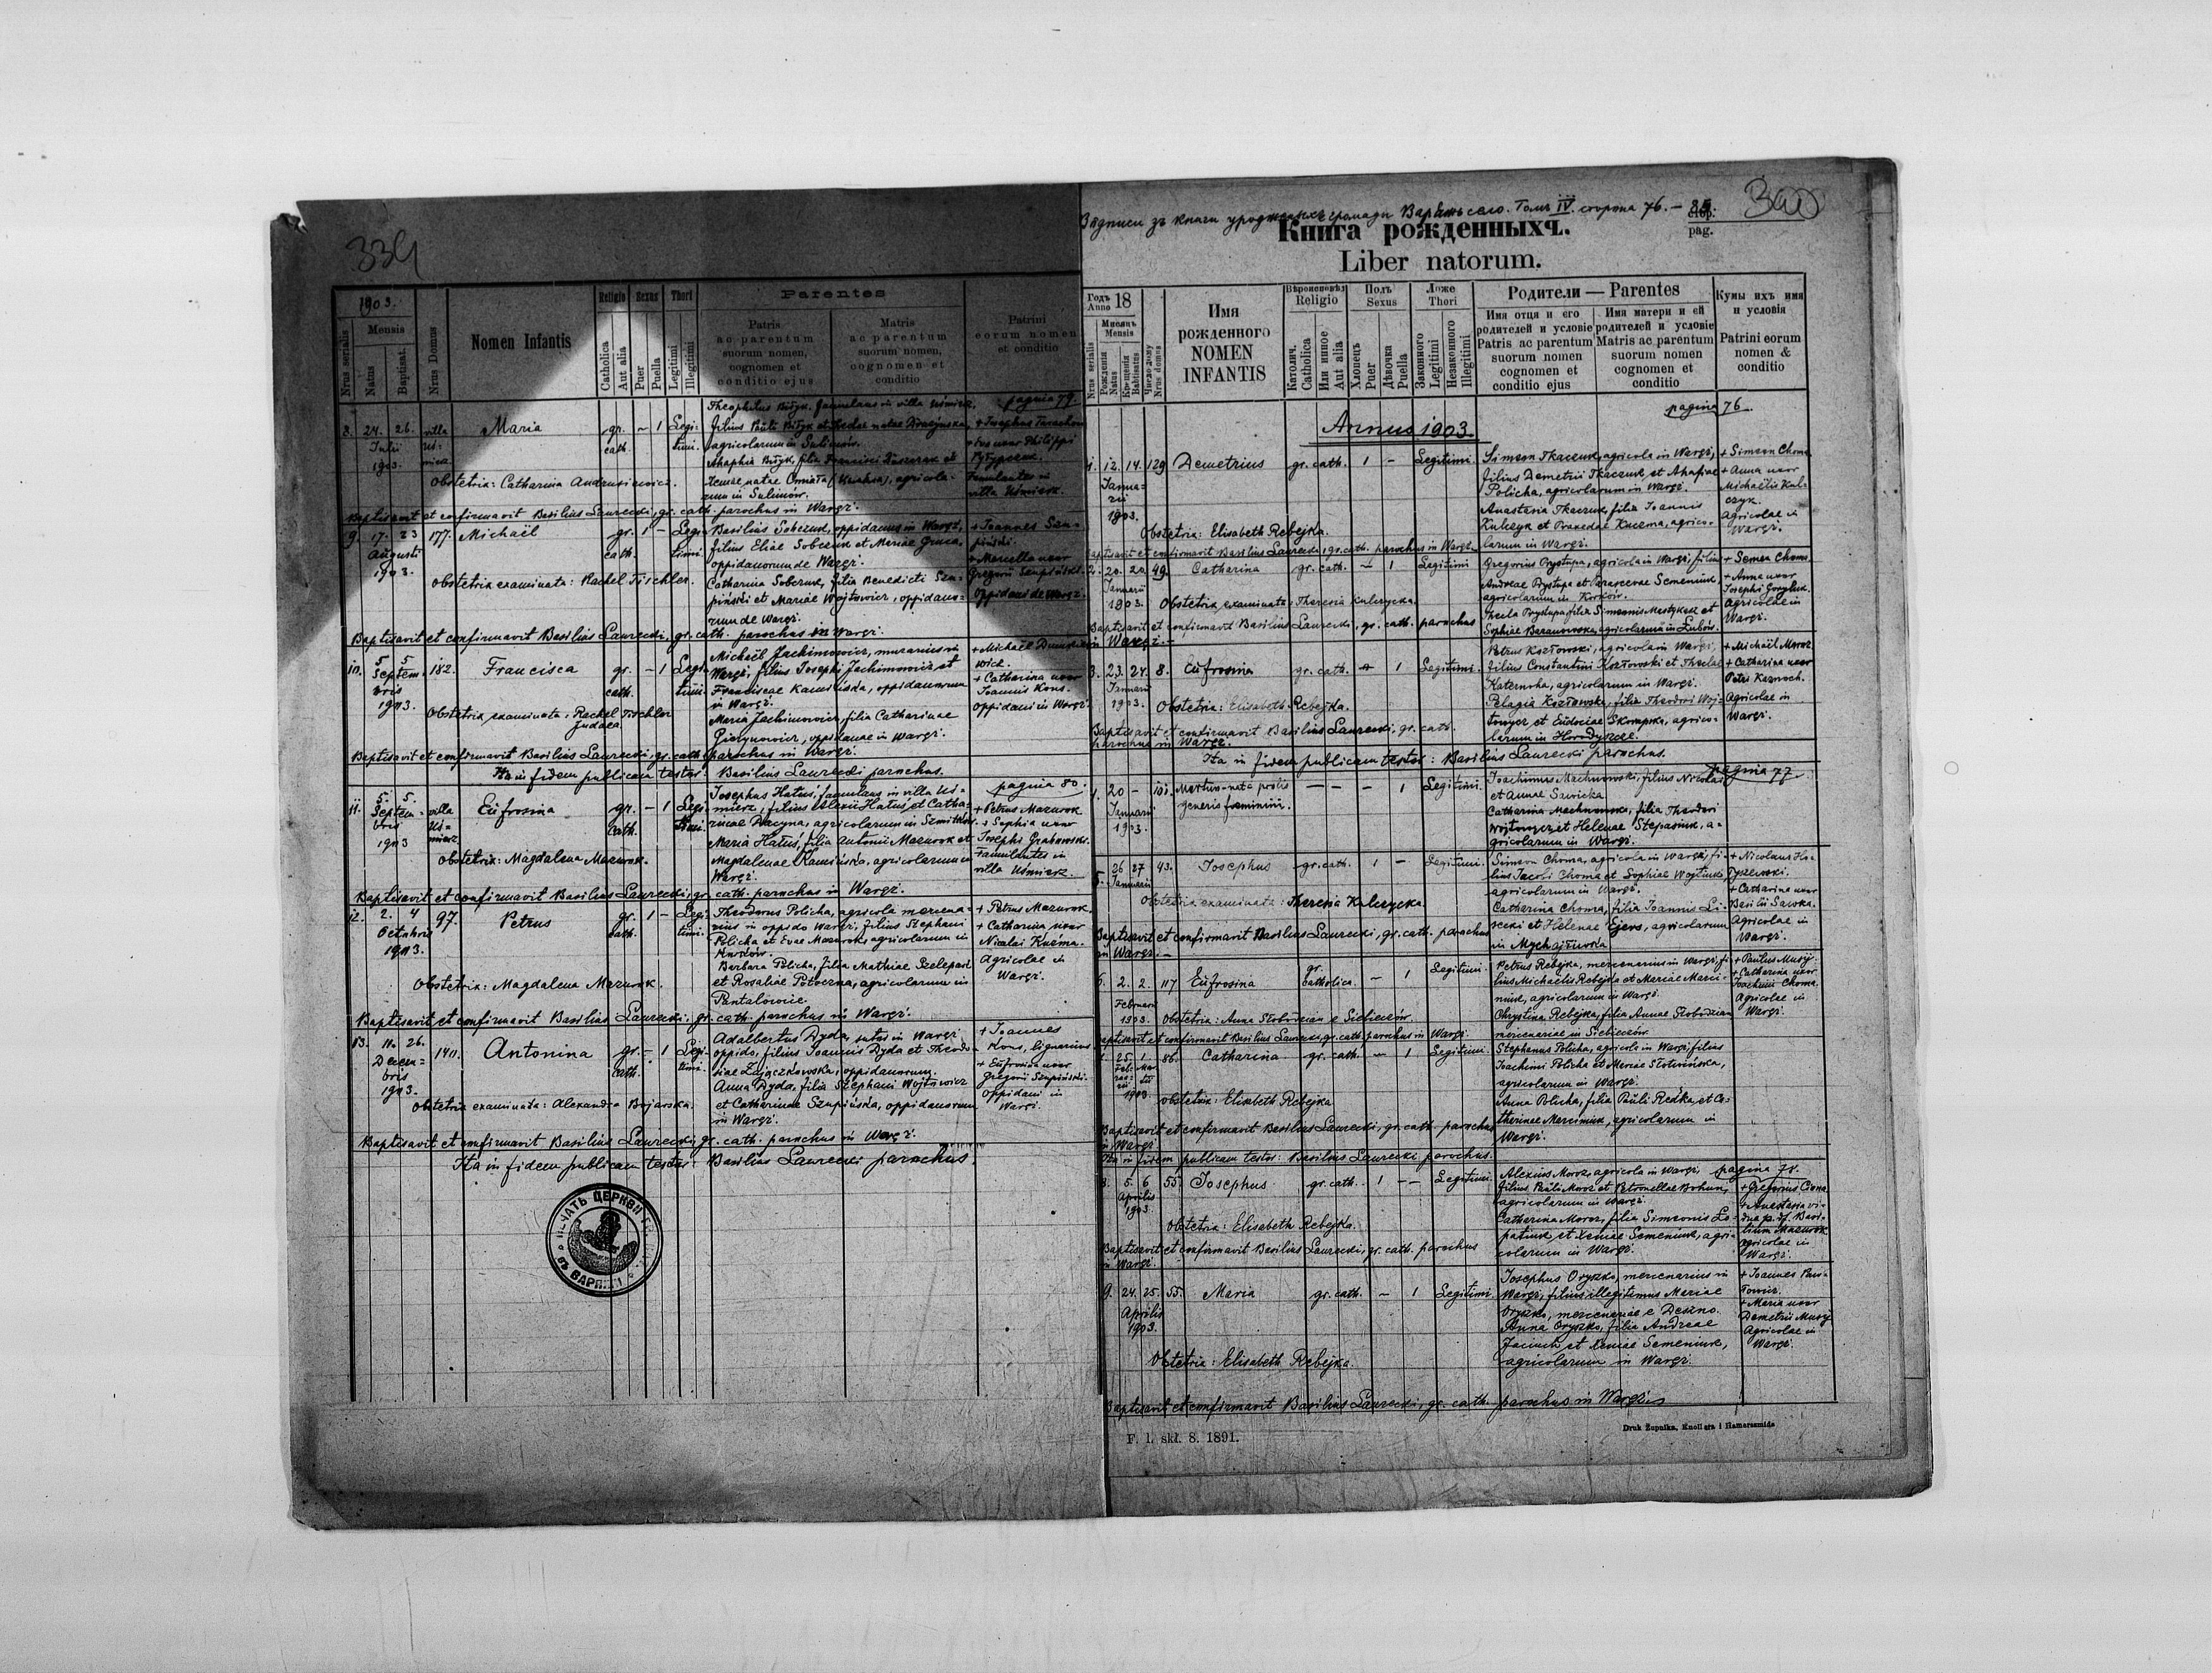 339
1903.
Nrus serialis
Mensis
Natus
Baptisat.
Nrus Domus
Nomen Infantis
Religio
Catholica
Aut alia
Sexus
Puer
Puella
Thori
Legitimi
Illegitimi
Parentes
Patris
ac parentum
suorum nomen,
cognomen et
conditio ejus
Matris
ac parentum
suorum nomen,
cognomen et
conditio
Patrini
eorum nomen
et conditio
pagina 79.
8. 24. 26. villa Maria gr. cath. – 1 Legitimi.
Julii
1903.
agricolarum in Sulimów.
Obstetrix: Catharina Andrusiewicz.
zum in Sulimów.
Baptisavit et confirmavit Basilius Laurecki, gr. cath. parochus in Waręż.
9. 17. 23 177. Michaël gr. cath. 1 – Legitimi.
Augusti
1903.
Basilius Sobczuk, oppidanus in Waręż,
filius Eliae Sobczuk et Mariae
oppidanorum de Waręż.
Catharina Sobczuk, filia Benedicti Szu-
piński et Mariae Wojtowicz, oppidano-
rum de Waręż.
+ Joannes Szu-
piński.
+ Marcella uxor
Gregorii Szupiński.
Oppidani de Waręż.
Obstetrix examinata: Rachel Tischler.
Baptisavit et confirmavit Basilius Laurecki, gr. cath. parochus in Waręż.
10. 5 5 182. Francisca gr. cath. – 1 Legitimi.
Septem-
bris
1903.
Michaël Jachimowicz, murarius in
Waręż, filius Josephi Jachimowicz et
Franciscae Kamińska, oppidanorum
in Waręż.
Maria Jachimowicz, filia Catharinae
oppidanae in Waręż.
+ Catharina uxor
Joannis Kons.
Oppidani in Waręż.
Obstetrix examinata: Rachel Tischler
Judaea.
Baptisavit et confirmavit Basilius Laurecki, gr. cath. parochus in Waręż.
Ita in fidem publicam testor: Basilius Laurecki parochus.
pagina 80.
11. 5. 5. villa Eufrosina gr. cath. – 1 Legitimi.
Septem-
bris
1903
Josephus Hałuś, famulans in villa Uś-
mierz, filius Alexii Hałuś et Catha-
rinae Pacyna, agricolarum in Szmitków.
Maria Hałuś, filia Antonii Mazurok et
Magdalenae Kamińska, agricolarum in
Waręż.
+ Petrus Mazurok
+ Sophia uxor
Josephi Grabowski.
Famulantes in
villa Uśmierz.
Obstetrix: Magdalena Mazurok.
Baptisavit et confirmavit Basilius Laurecki, gr. cath. parochus in Waręż.
12. 2. 4 97. Petrus gr. cath. 1 – Legitimi.
Octobris
1903.
Theodorus Policha, agricola mercena-
rius in oppido Waręż, filius Stephani
Policha et Evae Mazurok, agricolarum in
Barbara Policha, filia Mathiae Szelepast
et Rosaliae Potoczna, agricolarum in
+ Petrus Mazurok.
+ Catharina uxor
Nicolai Kuźma.
Agricolae in
Waręż.
Obstetrix: Magdalena Mazurok.
Baptisavit et confirmavit Basilius Laurecki, gr. cath. parochus in Waręż.
13. 10. 26. 140. Antonina gr. cath. – 1 Legitimi.
Decem-
bris
1903.
Adalbertus Dyda, sutor in Waręż
oppido, filius Joannis Dyda et Theodo-
siae Zajączkowska, oppidanorum.
Anna Dyda, filia Stephani Wojtowicz
et Catharinae Szupińska, oppidanorum
in Waręż.
+ Joannes
Kons, lignarius
+ Eufrosina uxor
Gregorii Szupiński.
Oppidani in
Waręż.
Obstetrix examinata: Alexandra Bojarska.
Baptisavit et confirmavit Basilius Laurecki, gr. cath. parochus in Waręż.
Ita in fidem publicam testor: Basilius Laurecki parochus.
ПЕЧАТЬ ЦЕРКВИ
Томъ IV. сторона 76. –
340
стор.
pag.
Книга рожденныхъ.
Liber natorum.
Годъ Anno 18
Nrus serialis
Мѣсяць
Mensis
Рожденія
Natus
Крещенія
Babtisatus
Число дому
Nrus domus
Имя
рожденного
NOMEN
INFANTIS
Вѣроисповѣд
Religio
Католич.
Catholica
Или инное
Aut alia
Полъ
Sexus
Хлопець
Puer
Дѣвочка
Puella
Ложе
Thori
Законного
Legitimi
Незаконного
Illegitimi
Родители — Parentes
Имя отца и его
родителей и условіе
Patris ac parentum
suorum nomen
cognomen et
conditio ejus
Имя матери и ей
родителей и условіе
Matris ac parentum
suorum nomen
cognomen et
conditio
Кумы ихъ имя
и условія
Patrini eorum
nomen &
conditio
pagina 76.
Annus 1903.
1. 12. 14. 129 Demetrius gr. cath. 1 – Legitimi.
Janua-
rii
1903.
Simeon Tkaczuk, agricola in Waręż,
filius Demetrii Tkaczuk, et Ahafiae
Policha, agricolarum in Waręż.
Anastasia Tkaczuk, filia Joannis
Kulczyk et Praxedae Kuczma, agrico-
larum in Waręż.
+ Simeon Choma
+ Anna uxor
Michaëlis Kul-
czyk.
Agricolae in
Waręż.
Obstetrix: Elisabeth Rebejka.
Baptisavit et confirmavit Basilius Laurecki, gr. cath. parochus in Waręż.
2. 20. 20. 49. Catharina gr. cath. – 1 Legitimi
Januarii
1903
Gregorius Prystupa, agricola in Waręż, filius
Andreae Prystupa et Parascevae Semeniuk,
agricolarum in Korków.
Thecla Prystupa, filia Simeonis et
Sophiae Baranowska, agricolarum in Lubów.
+ Semen Choma.
+ Anna uxor
Josephi
Agricolae in
Waręż.
Obstetrix examinata: Theresia Kulczycka.
Baptisavit et confirmavit Basilius Laurecki, gr. cath. parochus
in Waręż. –
3. 23. 24. 8. Eufrosina gr. cath. – 1 Legitimi.
Januarii
1903.
Petrus Kozłowski, agricola in Waręż,
filius Constantini Kozłowski et Theclae
Katernoha, agricolarum in Waręż.
Pelagia Kozłowska, filia Theodori Woj-
towycz et Eudociae Skompska, agrico-
larum in Horodyszcze.
+ Michaël Moroz
+ Catharina uxor
Petri
Agricolae in
Waręż.
Obstetrix: Elisabeth Rebejka.
Baptisavit et confirmavit Basilius Laurecki, gr. cath.
parochus in Waręż.
Ita in fidem publicam testor: Basilius Laurecki parochus.
pagina 77.
4. 20 – 101. Mortuo-nata prolis – – – 1 Legitimi.
generis feminini.
Januarii
1903.
Joachimus Machnowski, filius Nicolai
et Annae Sawicka
Catharina Machnowska, filia Theodori
Wojtowycz et Helenae Stepaniuk, a-
gricolarum in Waręż.
5. 26 27 43. Josephus gr. cath. 1 – Legitimi.
Januarii
Simeon Choma, agricola in Waręż, fi-
lius Jacobi Choma et Sophiae Wojtiuk,
agricolarum in Waręż.
Catharina Choma, filia Joannis Li-
secki et Helenae Ejers, agricolarum
in Mychajłówka
+ Nicolaus Ho-
łyszewski.
+ Catharina uxor
Basilii Sawka.
Agricolae in
Waręż.
Obstetrix examinata: Theresia Kulczycka
Baptisavit et confirmavit Basilius Laurecki, gr. cath. parochus
in Waręż. –
6. 2. 2. 117 Eufrosina gr. catholica. – 1 Legitimi.
Februarii
1903.
Petrus Rebejka, mercenarius in Waręż, fi-
lius Michaëlis Rebejka et Mariae Marci-
niuk, agricolarum in Waręż.
Chrystina Rebejka, filia Annae Słobodzian
mercenariae in Siebieczów.
+ Paulus Musij
+ Catharina uxor
Joachimi Choma.
Agricolae in
Waręż.
Obstetrix: Anna Słobodzian e Siebieczów.
Baptisavit et confirmavit Basilius Laurecki, gr. cath. parochus in Waręż.
25. 1. 86. Catharina gr. cath. – 1 Legitimi
1903
Stephanus Policha, agricola in Waręż, filius
Joachimi Policha et Mariae Słotwińska,
agricolarum in Waręż.
Anna Policha, filia Pauli Redka, et Ca-
therinae Marciniuk, agricolarum in
Waręż.
Obstetrix: Elisabeth Rebejka
Baptisavit et confirmavit Basilius Laurecki, gr. cath. parochus
in Waręż
Ita in fidem publicam testor: Basilius Laurecki parochus.
pagina 78.
8. 5. 6 55. Josephus gr. cath. 1 – Legitimi.
Aprilis
1903
Alexius Moroz, agricola in Waręż,
filius Pauli Moroz et Petronellae Bohun,
agricolarum in Waręż.
Catharina Moroz, filia Simeonis Lo-
patiuk, et Xeniae Semeniuk, agri-
colarum in Waręż.
+ Gregorius
+ Anastasia vi-
dua p. df. Basi-
lium Mazurok
agricolae in
Waręż.
Obstetrix: Elisabeth Rebejka.
Baptisavit et confirmavit Basilius Laurecki, gr. cath. parochus
in Waręż.
9. 24. 25. 55. Maria gr. cath. – 1 Legitimi.
Aprilis
1903.
Josephus Oryszko, mercenarius in
Waręż, filius illegitimus Mariae
Oryszko, mercenariae e Deszno.
Anna Oryszko, filia Andreae
Jaciuk et Xeniae Semeniuk,
agricolarum in Waręż.
+ Joannes
+ Maria uxor
Demetrii Musij
Agricolae in
Waręż.
Obstetrix: Elisabeth Rebejka.
Baptisavit et confirmavit Basilius Laurecki, gr. cath. parochus in Waręż.
F. 1. skł. 8. 1891.
Druk Żupnika, Knollera i Hamerszmida